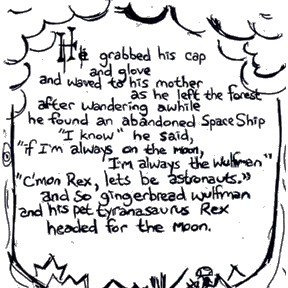 He grabbed his cap
and glove
and waved to his mother
as he left the forest
after wandering awhile
he found an abandoned Space Ship
"I know" he said,
"if I'm always on the moon,
I'm always the Wulfman"
"C'mon Rex, lets be astronauts."
and so gingerbread wulfman
and his pet tyranasaurus Rex
headed for the Moon.